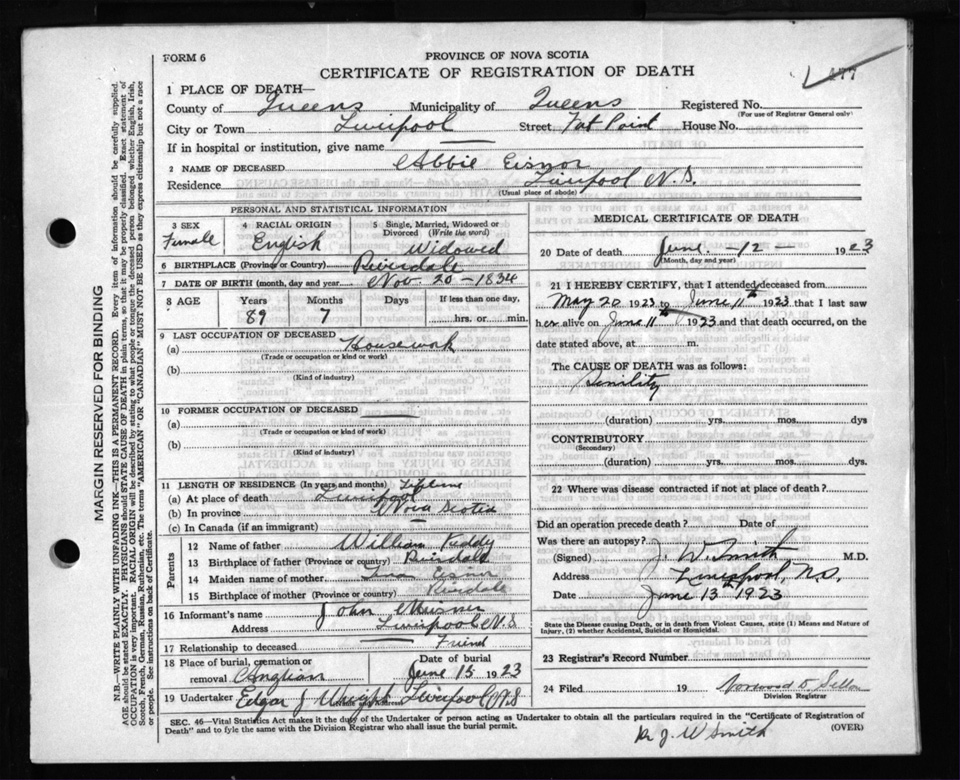 FORM 6
PROVINCE OF NOVA SCOTIA
CERTIFICATE OF REGISTRATION OF DEATH
477
1 PLACE OF DEATH—
County of Queens Municipality of Queens Registered No.
(For use of Registrar General only)
City or Town Liverpool Street Fat Point House No.
If in hospital or institution, give name
2 NAME OF DECEASED Abbie Eisnor
Residence Liverpool N.S.
(Usual place of abode)
PERSONAL AND STATISTICAL INFORMATION
3 SEX Female
4 RACIAL ORIGIN English
5 Single, Married, Widowed or Divorced (Write the word) Widowed
6 BIRTHPLACE (Province or Country) Riverdale
7 DATE OF BIRTH (month, day and year) Nov. 20 - 1834
8 AGE Years 89 Months 7 Days If less than one day, hrs. or min.
9 LAST OCCUPATION OF DECEASED
(a) Housework
(Trade or occupation or kind or work)
(b)
(Kind of industry)
10 FORMER OCCUPATION OF DECEASED
(a)
(Trade or occupation or kind of work)
(b)
(Kind of industry)
11 LENGTH OF RESIDENCE (In years and months) Lifetime
(a) At place of death Liverpool
(b) In province Nova Scotia
(c) In Canada (if an immigrant)
Parents
12 Name of father William
13 Birthplace of father (Province or country) Riverdale
14 Maiden name of mother
15 Birthplace of mother (Province or country) Riverdale
16 Informant's name John
Address Liverpool N.S
17 Relationship to deceased Friend
18 Place of burial, cremation or removal Anglian
Date of burial June 15 1923
19 Undertaker Edgar J Wright Liverpool N.S
MEDICAL CERTIFICATE OF DEATH
20 Date of death June - 12 - 1923
(Month, day and year)
21 I HEREBY CERTIFY, that I attended deceased from
May 20 1923 to June 11th 1923 that I last saw
her alive on June 11th 1923 and that death occurred, on the
date stated above, at m.
The CAUSE OF DEATH was as follows:
Senility
(duration) yrs. mos. dys
CONTRIBUTORY
(Secondary)
(duration) yrs. mos. dys.
22 Where was disease contracted if not at place of death?
Did an operation precede death? Date of
Was there an autopsy?
(Signed) J. W. Smith M.D.
Address Liverpool, N.S.
Date June 13th 1923
State the Disease causing Death, or in death from Violent Causes, state (1) Means and Nature of
Injury, (2) whether Accidental, Suicidal or Homicidal.
23 Registrar's Record Number
24 Filed 19
Division Registrar
SEC. 46—Vital Statistics Act makes it the duty of the Undertaker or person acting as Undertaker to obtain all the particulars required in the "Certificate of Registration of
Death" and to fyle the same with the Division Registrar who shall issue the burial permit.
(OVER)
Dr J. W Smith
MARGIN RESERVED FOR BINDING
N.B.—WRITE PLAINLY WITH UNFADING INK—THIS IS A PERMANENT RECORD. Every item of information should be carefully supplied.
AGE should be stated EXACTLY. PHYSICIANS should STATE CAUSE OF DEATH in plain terms, so that it may be properly classified. Exact statement of
OCCUPATION is very important. RACIAL ORIGIN will be described by stating to what people or tongue the deceased person belonged whether English, Irish,
Scotch, French, German, Russian, Ruthenian, etc. The terms "AMERICAN" OR "CANADIAN" MUST NOT BE USED as they express citizenship but not a race
or people. See instructions on back of Certificate.